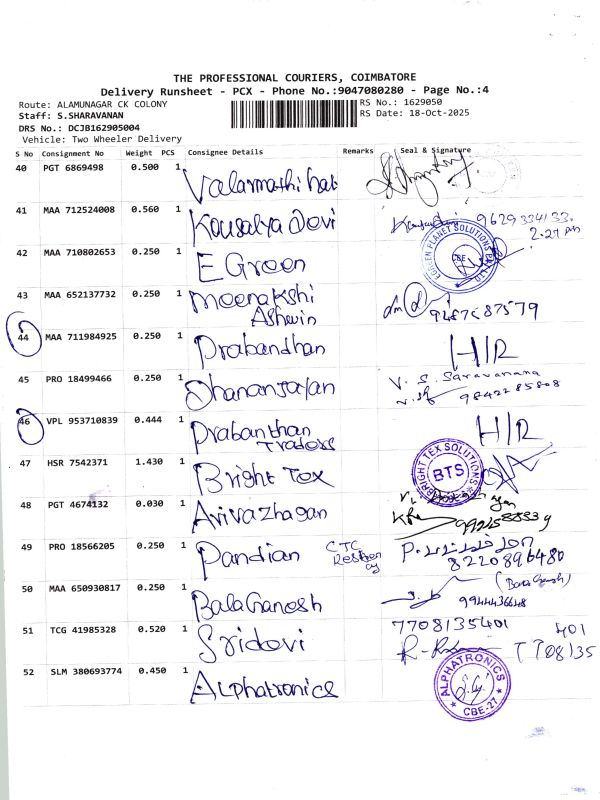 THE PROFESSIONAL COURIERS, COIMBATORE
Delivery Runsheet - PCX - Phone No.:9047080280 - Page No.:4
Route: ALAMUNAGAR CK COLONY
RS No.: 1629050
Staff: S.SHARAVANAN
RS Date: 18-Oct-2025
DRS No.: DCJB162905004
Vehicle: Two Wheeler Delivery
S No Consignment No Weight PCS Consignee Details Remarks Seal & Signature
40 PGT 6869498 0.500 1 Valarmathi
41 MAA 712524008 0.560 1 Kousalya Devi 9629334133
2.27 PM
42 MAA 710802653 0.250 1 E Green GREEN PLANET SOLUTIONS CBE
43 MAA 652137732 0.250 1 Meenakshi
Ashwin
44 MAA 711984925 0.250 1 Prabandhan H/R
45 PRO 18499466 0.250 1 Dhananjayan V. S. Saravanana
9842285808
46 VPL 953710839 0.444 1 Prabanthan
Traders H/R
47 HSR 7542371 1.430 1 Bright Tex BRIGHT TEX SOLUTIONS BTS
48 PGT 4674132 0.030 1 Arivazhagan
49 PRO 18566205 0.250 1 Pandian CTC P. பாண்டியன்
8220896480
50 MAA 650930817 0.250 1 Bala Ganesh
9944436648
51 TCG 41985328 0.520 1 Sridevi 7708135401
401
7708135
52 SLM 380693774 0.450 1 Alphatronics ALPHATRONICS CBE-27